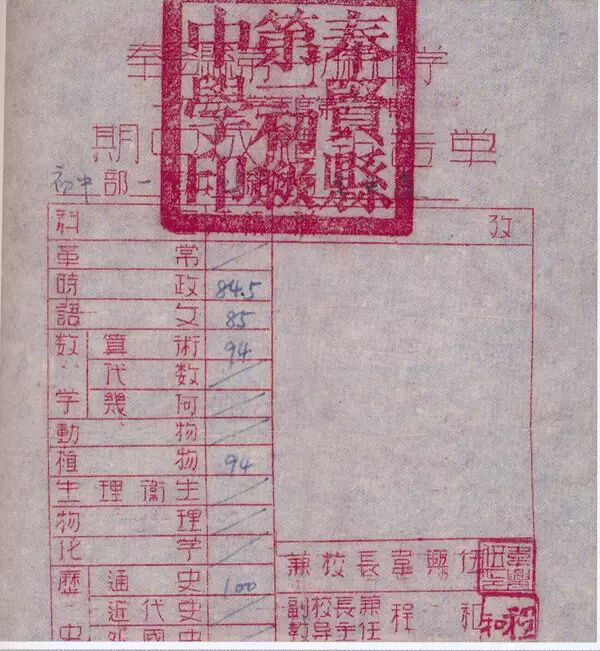 奉賢縣
第一初級
中學印
奉 学
期中成 告单
初中部一
科 績 攷
革 常
時 政 84.5
語 文 85
数学 算術 94
代数
幾何
動物
植物 94
生理衛生
物理
化学
歷史 通史 100
近代史
外國史
兼校長韋興伍
副校長兼教导主任 程和